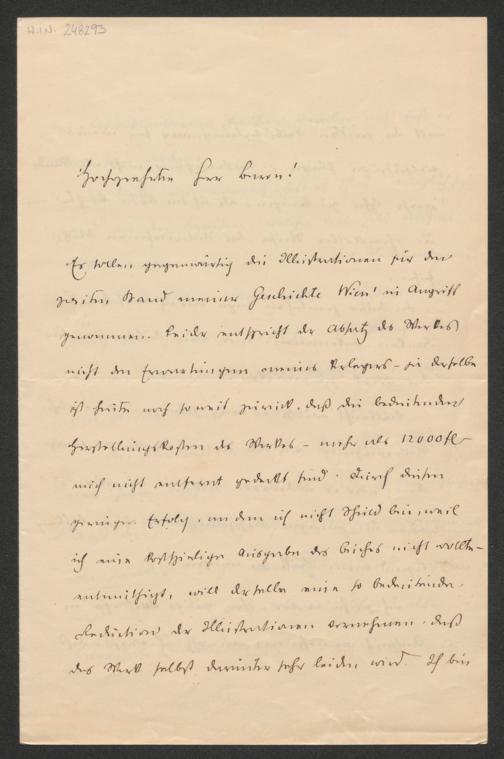 H.I.N. 248293
Hochgeehrter Herr Baron!
Es sollen gegenwärtig die Illustrationen für den
zweiten Band meiner Geschichte Wien's in Angriff
genommen. Leider entspricht der Absatz des Werkes
nicht den Erwartungen meines Verlegers – ja derselbe
ist heute noch so weit zurück, daß die bedeutenden
Herstellungskosten des Werkes – mehr als 12000 fl –
noch nicht entfernt gedeckt sind. Durch diesen
geringen Erfolg, an dem ich nicht Schuld bin, weil
ich eine kostspielige Ausgabe des Buches nicht wollte –
entmuthigt, will derselbe eine so bedeutende
Reduction der Illustrationen vornehmen, daß
das Werk selbst darunter sehr leiden wird. Ich bin